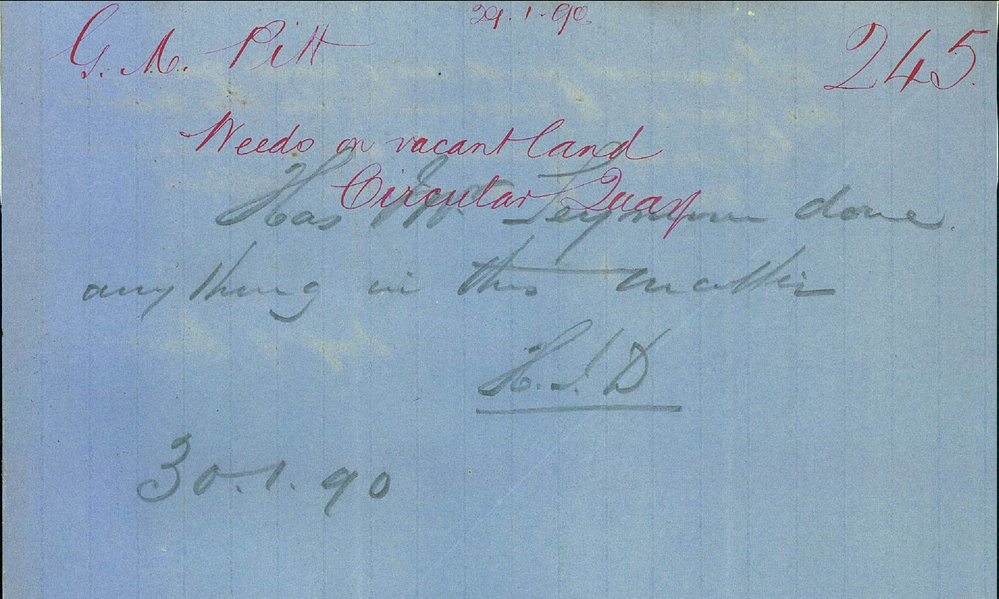 29.1.90
G. M. Pitt
245.
Weeds on vacant land
Circular Quay
Has Mr Seymour done
any thing in this matter
H.J.D
30.1.90